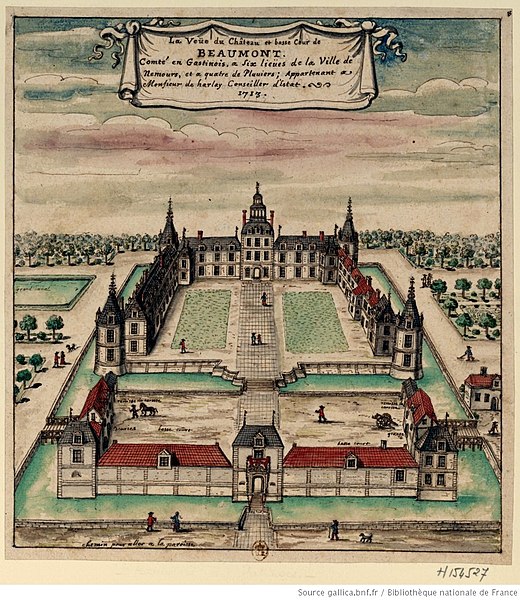 La Veüe du Château et basse Cour de
BEAUMONT.
Comté en Gastinois, a Six lieües de la Ville de
Nemours, et a quatre de Pluviers; Appartenant a
Monsieur de harlay Conseiller d'estat.
1713.
basse cour
basse court
chemin pour aller a la paroisse
H 154527
Source gallica.bnf.fr / Bibliothèque nationale de France